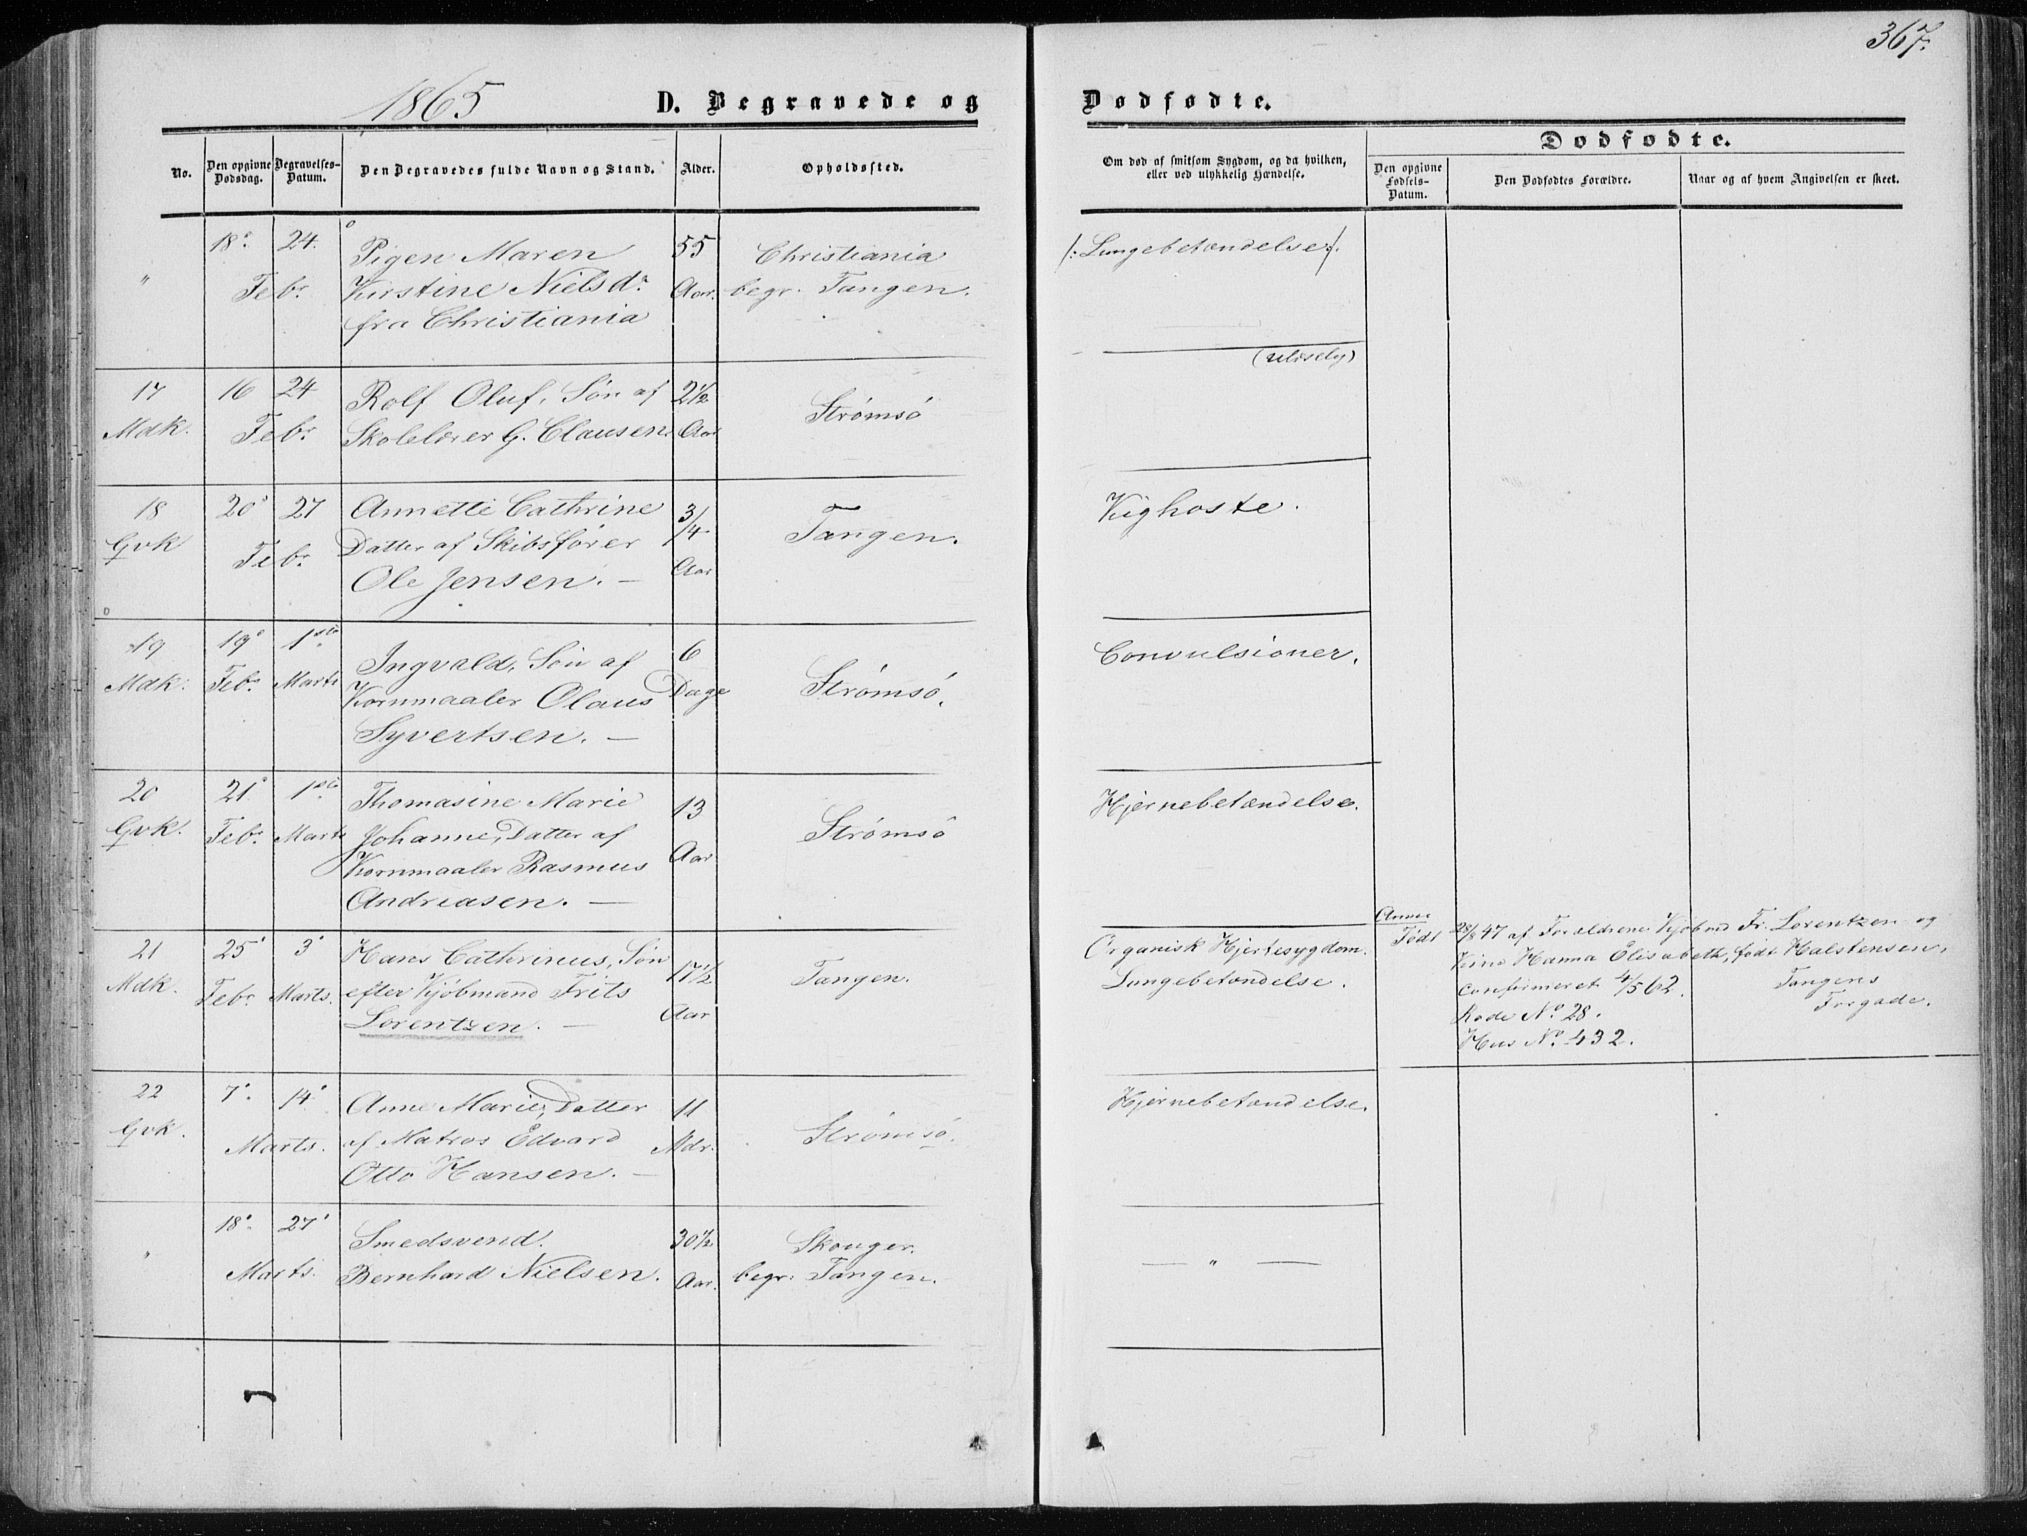 367.
1865
D. Begravede og Dødfødte.
Dødfødte.
No.
Den opgivne Dødsdag.
Begravelses-Datum.
Den Begravedes fulde Navn og Stand.
Alder.
Opholdssted.
Om død af smitsom Sygdom, og da hvilken, eller ved ulykkelig Hændelse.
Den opgivne Fødsels-Datum.
Den Dødfødtes Forældre.
Naar og af hvem Angivelsen er skeet.
" 18. 24. Pigen Maren 55 Christiania /: Lungebetændelse :/.
Febr. Kirstine Nielsdr. Aar. begr. Tangen.
fra Christiania
17 16 24 Rolf Oluf, Søn af 2½ Strømsø
Mdk. Febr. Skolelærer G. Clausen. Aar
18 20 27 Annette Cathrine 3/4 Tangen. Kighoste.
Gvk Febr. Datter af Skibsfører Aar
Ole Jensen. —
19 19 1ste Ingvald, Søn af 6 Strømsø. Convulsioner.
Mdk. Febr. Marts Kornmaaler Olaus Dage
Syvertsen. —
20 21 1ste Thomasine Marie 13 Strømsø Hjernebetændelse.
Gvk. Febr. Marts Johanne, Datter af Aar
Kornmaaler Rasmus
Andreasen. —
21 25 3 Hans Cathrinus, Søn 17½ Tangen. Organisk Hjertesygdom.
Mdk. Febr Marts. efter Kjøbmand Frits Aar Lungebetændelse.
Lorentzen. —
Født 28/8 47 af Forældrene Kjøbmd Fr. Lorentzen og
Hanna Elisabeth, født Halstensen,
Confirmeret 4/5 62. Tangens
Rode No. 28. Forgade.
Hus No. 432.
22 7. 14 Anne Marie, Datter 11 Strømsø. Hjernebetændelse.
Gvk. Marts. af Matros Edvard Mdr.
Otto Hansen. —
" 18. 27 Smedsvend. 30½ Skouger. — " —
Marts. Bernhard Nielsen. Aar. begr. Tangen.